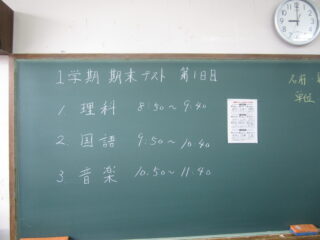 1学期 期末テスト 第1日目
1. 理科 8:50〜9:40
2. 国語 9.50〜10.40
3. 音楽 10.50〜11.40
名前・
学位